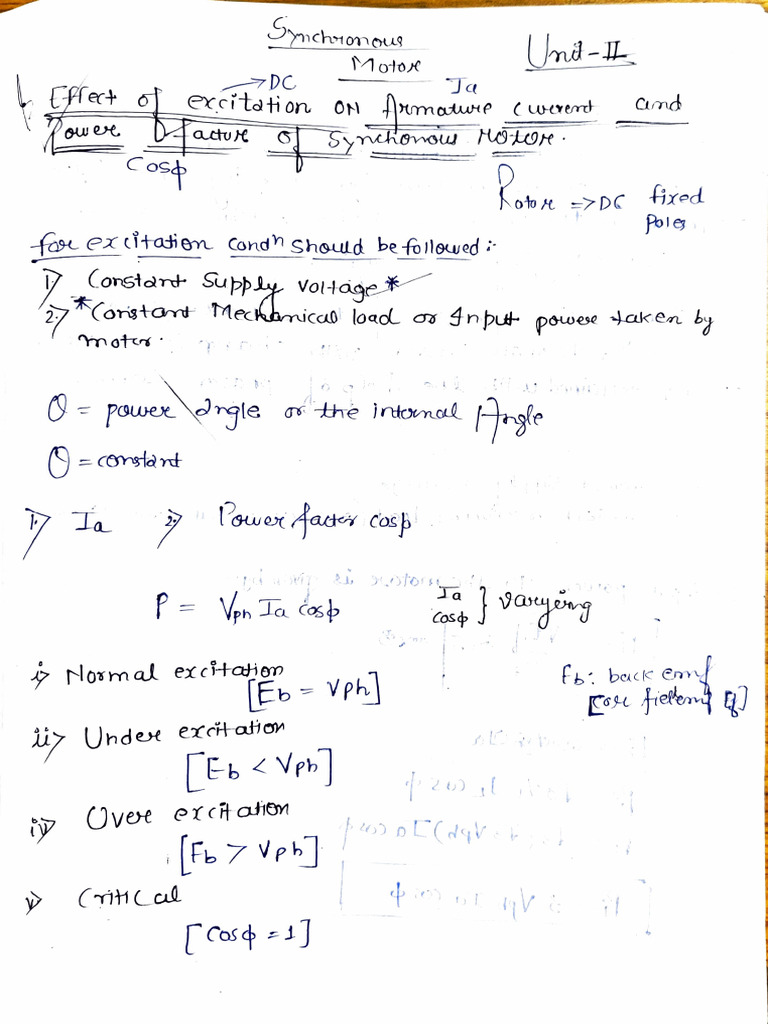 Synchronous
Motor
Unit-II
→DC
Ia
Effect of excitation ON Armature current and
Power factor of Synchonous Motor.
Cosφ
Rotor => DC fixed
poles
for excitation condⁿ should be followed:-
1) Constant Supply Voltage*
2.) *Constant Mechanical load or Input power taken by
motor.
θ = power angle or the internal Angle
θ = constant
1.) Ia 2.) Power factor cosφ
P = Vph Ia cosφ
Ia
cosφ } varyeing
i) Normal excitation
[Eb = Vph]
Eb: back emf
[or field emf Ef]
ii) Under excitation
[Eb < Vph]
iv) Over excitation
[Eb > Vph]
v) Critical
[Cosφ = 1]